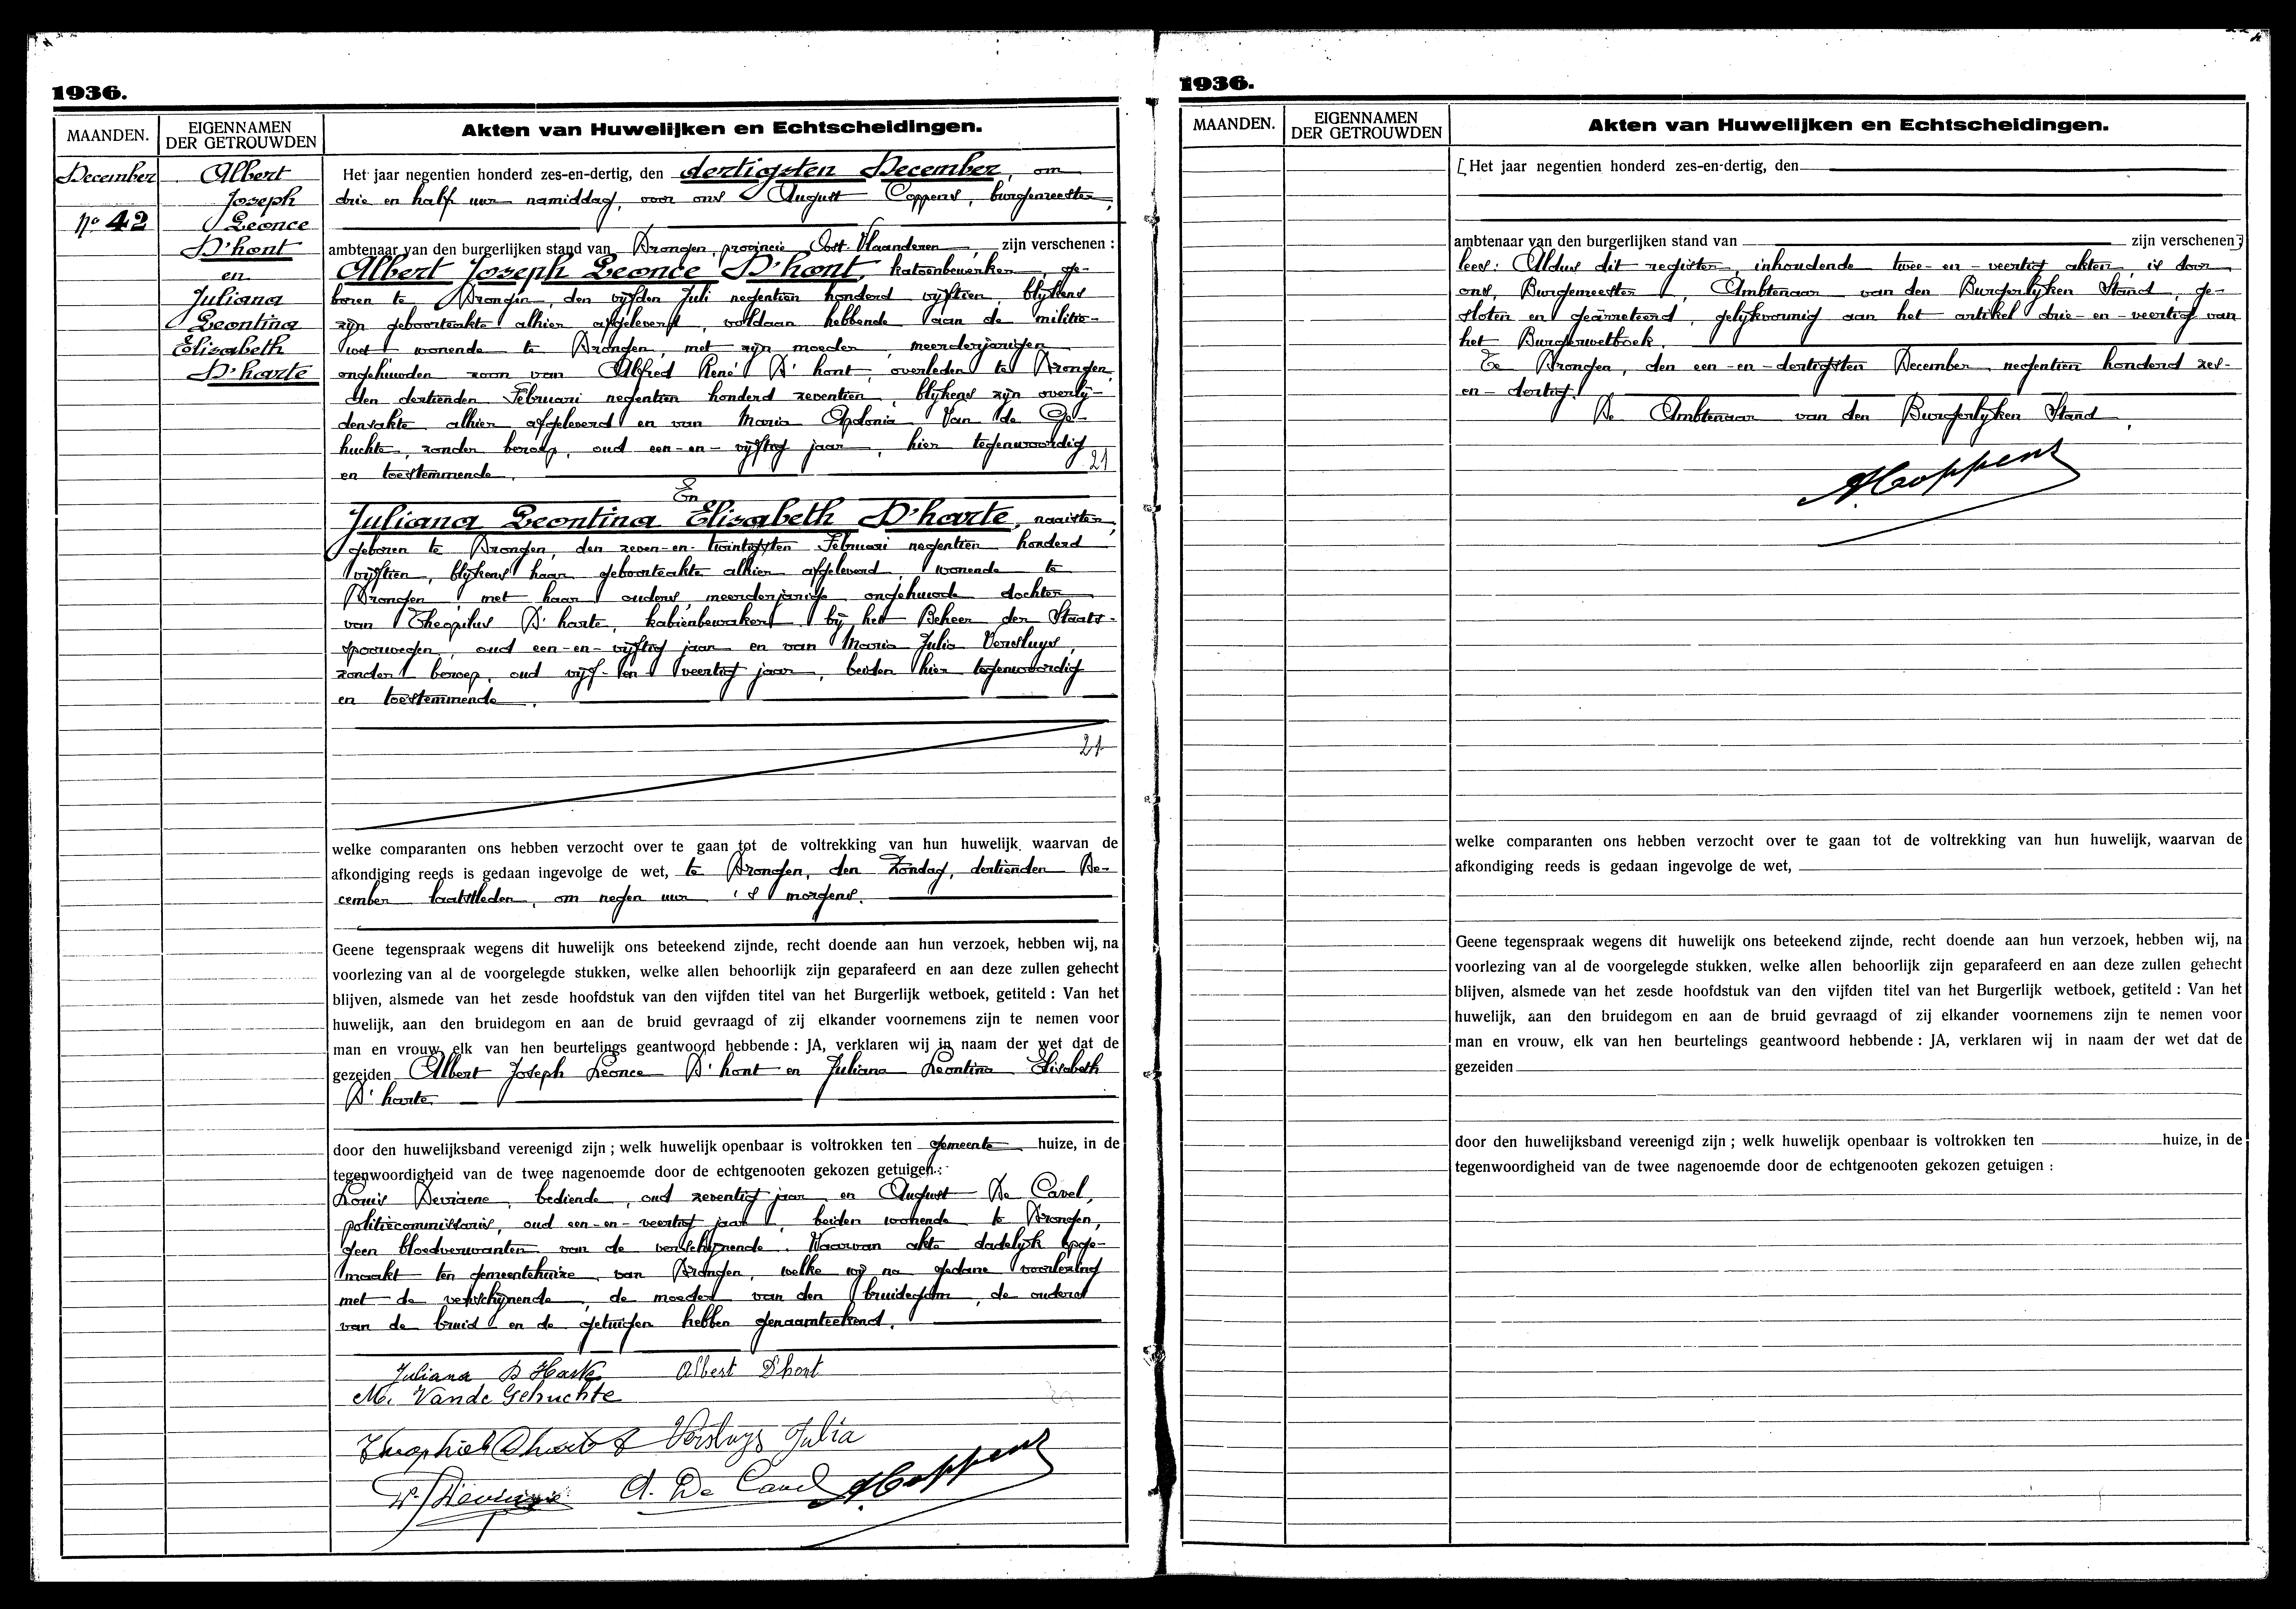 1936.
MAANDEN.
EIGENNAMEN
DER GETROUWDEN
Akten van Huwelijken en Echtscheidingen.
December
No 42
Albert
Joseph
Leonce
D'hont
en
Juliana
Leontina
Elisabeth
D'harte
Het jaar negentien honderd zes-en-dertig, den dertigsten December, om
drie en half uur namiddag, voor ons August Coppens, burgemeester,
ambtenaar van den burgerlijken stand van Drongen, provincie Oost-Vlaanderen, zijn verschenen :
Albert Joseph Leonce D'hont, katoenbewerker, ge-
boren te Drongen, den vijfden Juli negentien honderd vijftien, blijkens
zijn geboorteakte alhier afgeleverd, voldaan hebbende aan de militie-
wet, wonende te Drongen, met zijn moeder, meerderjarigen
ongehuwden zoon van Alfred René D'hont, overleden te Drongen,
den dertienden Februari negentien honderd zeventien, blijkens zijn overlij-
densakte alhier afgeleverd en van Maria Apolonia Van de Ge-
huchte, zonder beroep, oud een-en-vijftig jaar, hier tegenwoordig
en toestemmende.
21
En
Juliana Leontina Elisabeth D'harte, naaister,
geboren te Drongen, den zeven-en-twintigsten Februari negentien honderd
vijftien, blijkens haar geboorteakte alhier afgeleverd, wonende te
Drongen, met haar ouders, meerderjarige ongehuwde dochter
van Theopilus D'harte, kabienbewaker bij het Beheer der Staats-
spoorwegen, oud een-en-vijftig jaar en van Maria Julia Versluys,
zonder beroep, oud vijf-en-veertig jaar, beiden hier tegenwoordig
en toestemmende.
21
welke comparanten ons hebben verzocht over te gaan tot de voltrekking van hun huwelijk, waarvan de
afkondiging reeds is gedaan ingevolge de wet, te Drongen, den Zondag, dertienden De-
cember laatstleden, om negen uur 's morgens.
Geene tegenspraak wegens dit huwelijk ons beteekend zijnde, recht doende aan hun verzoek, hebben wij, na
voorlezing van al de voorgelegde stukken, welke allen behoorlijk zijn geparafeerd en aan deze zullen gehecht
blijven, alsmede van het zesde hoofdstuk van den vijfden titel van het Burgerlijk wetboek, getiteld : Van het
huwelijk, aan den bruidegom en aan de bruid gevraagd of zij elkander voornemens zijn te nemen voor
man en vrouw, elk van hen beurtelings geantwoord hebbende : JA, verklaren wij in naam der wet dat de
gezeiden Albert Joseph Leonce D'hont en Juliana Leontina Elisabeth
D'harte
door den huwelijksband vereenigd zijn ; welk huwelijk openbaar is voltrokken ten gemeente huize, in de
tegenwoordigheid van de twee nagenoemde door de echtgenooten gekozen getuigen :
Louis Deviaene, bediende, oud zeventig jaar en August De Cavel,
politiecommissaris, oud een-en-veertig jaar, beiden wonende te Drongen,
geen bloedverwanten van de verschijnende. Waarvan akte dadelijk opge-
maakt ten gemeentehuize van Drongen, welke wij na gedane voorlezing
met de verschijnende, de moeder van den bruidegom, de ouders
van de bruid en de getuigen hebben genaamteekend.
Juliana D'Harte Albert D'hont
M. Vande Gehuchte
Theophiel Dharte Versluys Julia
A. De Cavel A Coppens
1936.
MAANDEN.
EIGENNAMEN
DER GETROUWDEN
Akten van Huwelijken en Echtscheidingen.
[Het jaar negentien honderd zes-en-dertig, den
ambtenaar van den burgerlijken stand van zijn verschenen]
lees: Aldus dit register, inhoudende twee-en-veertig akten, is door
ons, Burgemeester, Ambtenaar van den Burgerlijken Stand, ge-
sloten en geärreteerd, gelijkvormig aan het artikel drie-en-veertig van
het Burgerwetboek.
Te Drongen, den een-en-dertigsten December negentien honderd zes-
en-dertig.
De Ambtenaar van den Burgerlijken Stand,
A Coppens
welke comparanten ons hebben verzocht over te gaan tot de voltrekking van hun huwelijk, waarvan de
afkondiging reeds is gedaan ingevolge de wet,
Geene tegenspraak wegens dit huwelijk ons beteekend zijnde, recht doende aan hun verzoek, hebben wij, na
voorlezing van al de voorgelegde stukken, welke allen behoorlijk zijn geparafeerd en aan deze zullen gehecht
blijven, alsmede van het zesde hoofdstuk van den vijfden titel van het Burgerlijk wetboek, getiteld : Van het
huwelijk, aan den bruidegom en aan de bruid gevraagd of zij elkander voornemens zijn te nemen voor
man en vrouw, elk van hen beurtelings geantwoord hebbende : JA, verklaren wij in naam der wet dat de
gezeiden
door den huwelijksband vereenigd zijn ; welk huwelijk openbaar is voltrokken ten huize, in de
tegenwoordigheid van de twee nagenoemde door de echtgenooten gekozen getuigen :